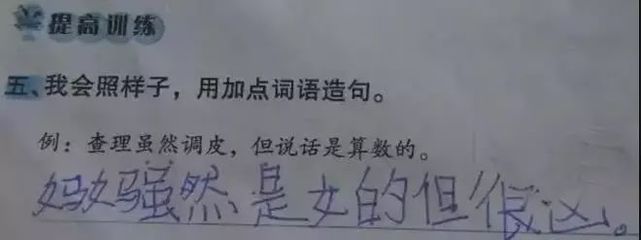 提高训练
五、我会照样子，用加点词语造句。
例：查理虽然调皮，但说话是算数的。
妈妈虽然是女的但很凶。